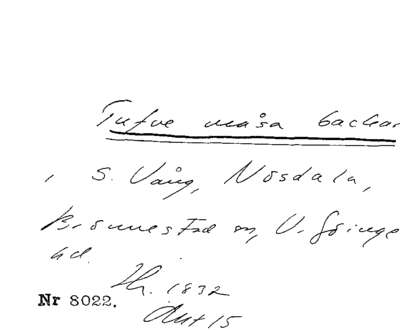 Tufve måsa backar
, S. Vång, Nösdala,
Brönnestad sn, V. Göinge
hd.
Nr 8022.
1832
Akt 15